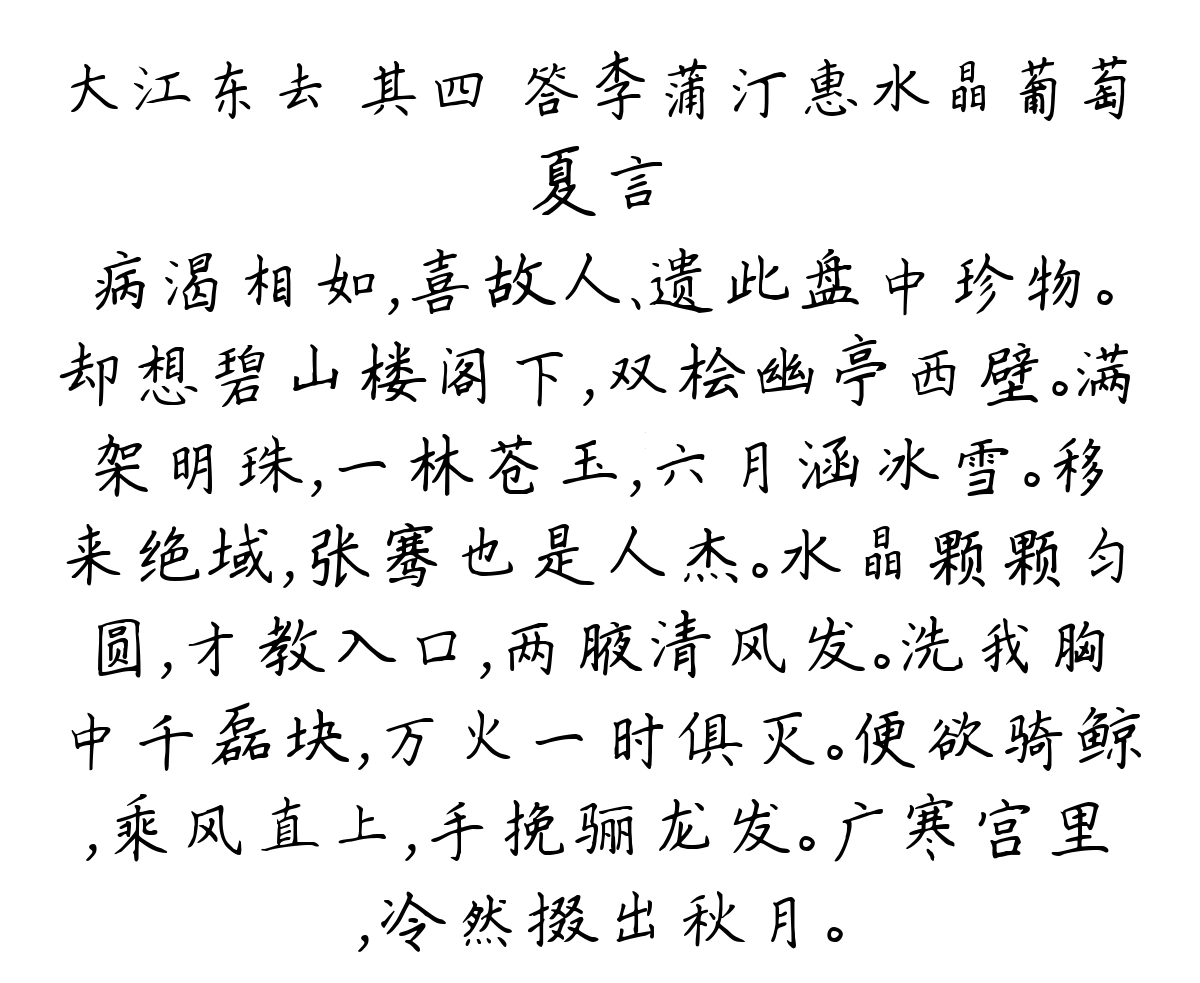 大江东去 其四 答李蒲汀惠水晶葡萄
夏言
病渴相如,喜故人、遗此盘中珍物。
却想碧山楼阁下,双桧幽亭西壁。满
架明珠,一林苍玉,六月涵冰雪。移
来绝域,张骞也是人杰。水晶颗颗匀
圆,才教入口,两腋清风发。洗我胸
中千磊块,万火一时俱灭。便欲骑鲸
,乘风直上,手挽骊龙发。广寒宫里
,冷然掇出秋月。